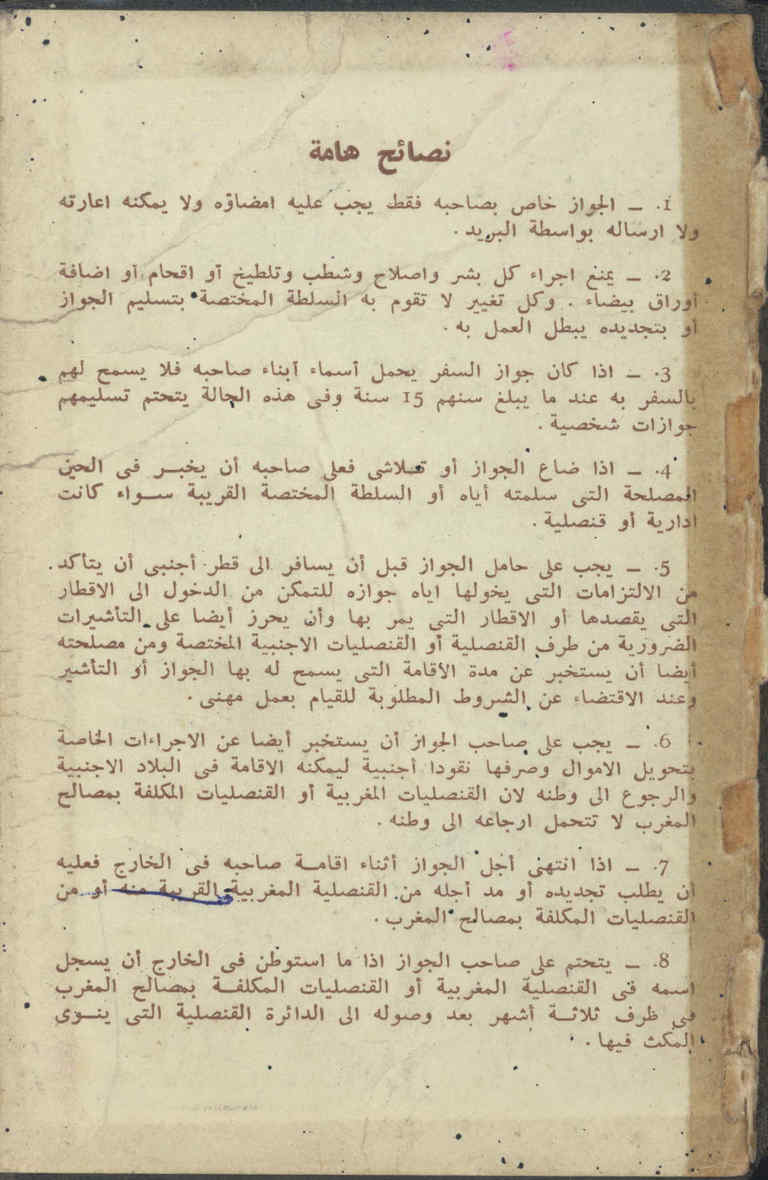 نصائح هامة
1. — الجواز خاص بصاحبه فقط يجب عليه امضاؤه ولا يمكنه اعارته
ولا ارساله بواسطة البريد.
2. — يمنع اجراء كل بشر واصلاح وشطب وتلطيخ أو اقحام أو اضافة
أوراق بيضاء . وكل تغيير لا تقوم به السلطة المختصة بتسليم الجواز
أو بتجديده يبطل العمل به.
3. — اذا كان جواز السفر يحمل أسماء أبناء صاحبه فلا يسمح لهم
بالسفر به عند ما يبلغ سنهم 15 سنة وفى هذه الحالة يتحتم تسليمهم
جوازات شخصية.
4. — اذا ضاع الجواز أو تلاشى فعلى صاحبه أن يخبر فى الحين
المصلحة التى سلمته أياه أو السلطة المختصة القريبة سواء كانت
ادارية أو قنصلية.
5. — يجب على حامل الجواز قبل أن يسافر الى قطر أجنبى أن يتأكد
من الالتزامات التى يخولها اياه جوازه للتمكن من الدخول الى الاقطار
التى يقصدها أو الاقطار التي يمر بها وأن يحرز أيضا على التأشيرات
الضرورية من طرف القنصلية أو القنصليات الاجنبية المختصة ومن مصلحته
أيضا أن يستخبر عن مدة الأقامة التى يسمح له بها الجواز أو التأشير
وعند الاقتضاء عن الشروط المطلوبة للقيام بعمل مهنى.
6. — يجب على صاحب الجواز أن يستخبر أيضا عن الاجراءات الخاصة
بتحويل الاموال وصرفها نقودا أجنبية ليمكنه الاقامة فى البلاد الاجنبية
والرجوع الى وطنه لان القنصليات المغربية أو القنصليات المكلفة بمصالح
المغرب لا تتحمل ارجاعه الى وطنه.
7. — اذا انتهى أجل الجواز أثناء اقامة صاحبه فى الخارج فعليه
أن يطلب تجديده أو مد أجله من القنصلية المغربية القريبة منه أو من
القنصليات المكلفة بمصالح المغرب.
8. — يتحتم على صاحب الجواز اذا ما استوطن فى الخارج أن يسجل
اسمه فى القنصلية المغربية أو القنصليات المكلفة بمصالح المغرب
فى ظرف ثلاثة أشهر بعد وصوله الى الدائرة القنصلية التى ينوى
المكث فيها.